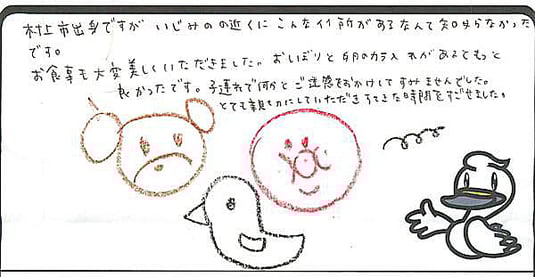 村上市出身ですが いじみのの近くに こんな 所があるなんて知らなかった
です。
お食事も大変美しくいただきました。おしぼりと 卵の入れがあるともっと
良かったです。子連れで何かとご迷惑をおかけしてすみませんでした。
とても親切にしていただきすてきな時間をすごせました。